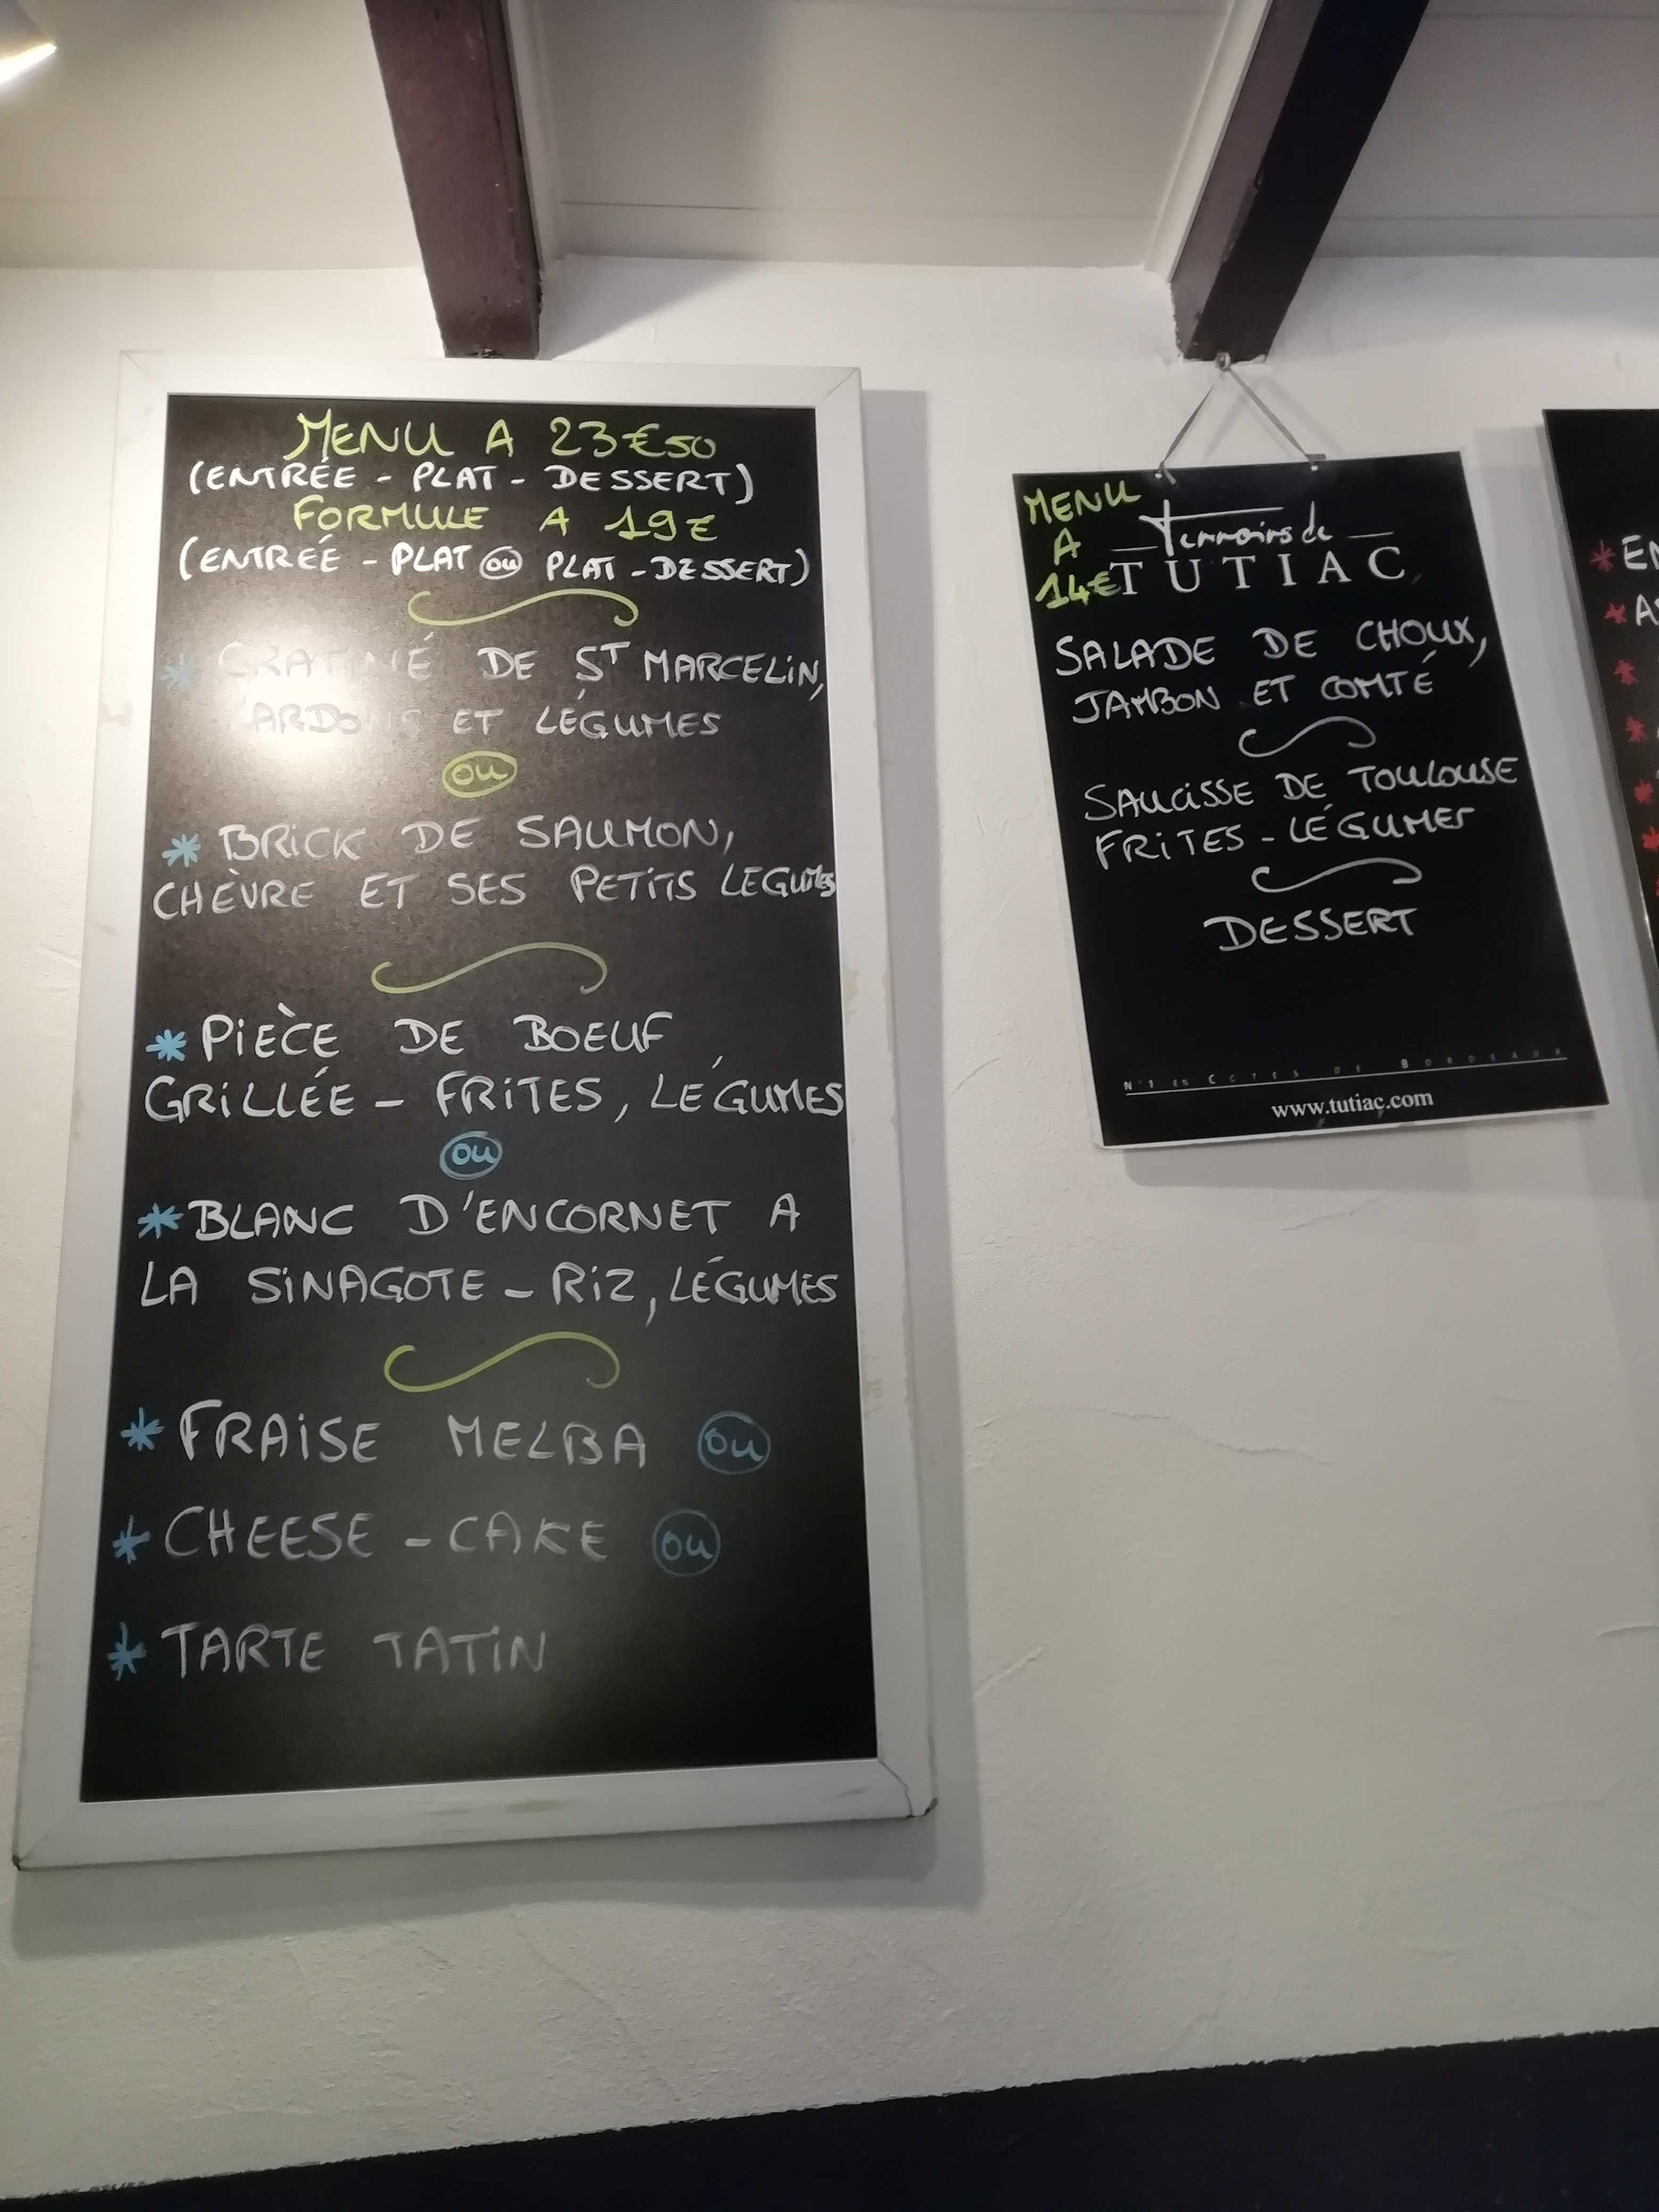 MENU A 23€50
(ENTRÉE - PLAT - DESSERT)
FORMULE A 19€
(ENTREÉ - PLAT OU PLAT - DESSERT)
* GRATINÉ DE ST MARCELIN,
LARDONS ET LÉGUMES
OU
* BRICK DE SAUMON,
CHÈVRE ET SES PETITS LEGUMES
* PIÈCE DE BOEUF
GRILLÉE - FRITES, LÉGUMES
OU
* BLANC D'ENCORNET A
LA SINAGOTE - RIZ, LÉGUMES
* FRAISE MELBA OU
* CHEESE - CAKE OU
* TARTE TATIN
MENU
A
14€
Terroirs de
TUTIAC
SALADE DE CHOUX,
JAMBON ET COMTÉ
SAUCISSE DE TOULOUSE
FRITES - LÉGUMES
DESSERT
N°1 EN CÔTES DE BORDEAUX
www.tutiac.com